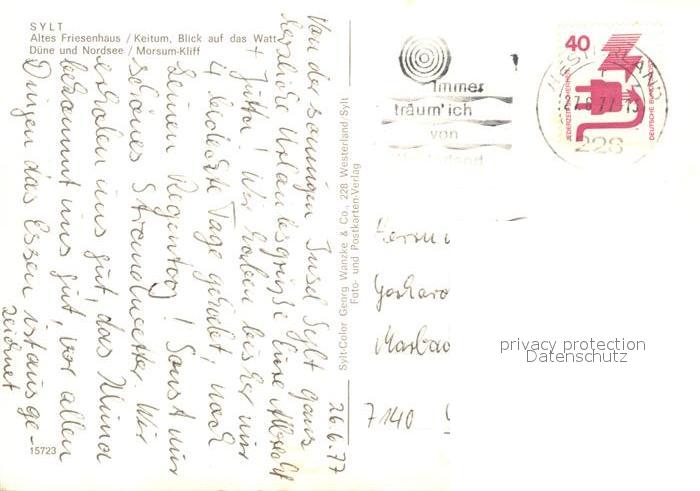 SYLT
Altes Friesenhaus / Keitum, Blick auf das Watt
Düne und Nordsee / Morsum-Kliff
26.6.77
Von der sonnigen Insel Sylt ganz
herzliche Urlaubsgrüße Eure
+ Jutta! Wir haben bisher nur
4 Tage gehabt, noch
keinen Regentag! Sonst nur
schönes Strandwetter. Wir
erholen uns gut, das Klima
bekommt uns gut, vor allen
Dingen das Essen ist ausge-
zeichnet
15723
Sylt-Color Georg Wanzke & Co., 228 Westerland Sylt
Foto- und Postkarten-Verlag
Immer
träum' ich
von
Westerland
40
JEDERZEIT SICHERHEIT
DEUTSCHE BUNDESPOST
WESTERLAND
27.6.77-15
228
Herrn
Gerhard
Marbac
7140
privacy protection
Datenschutz